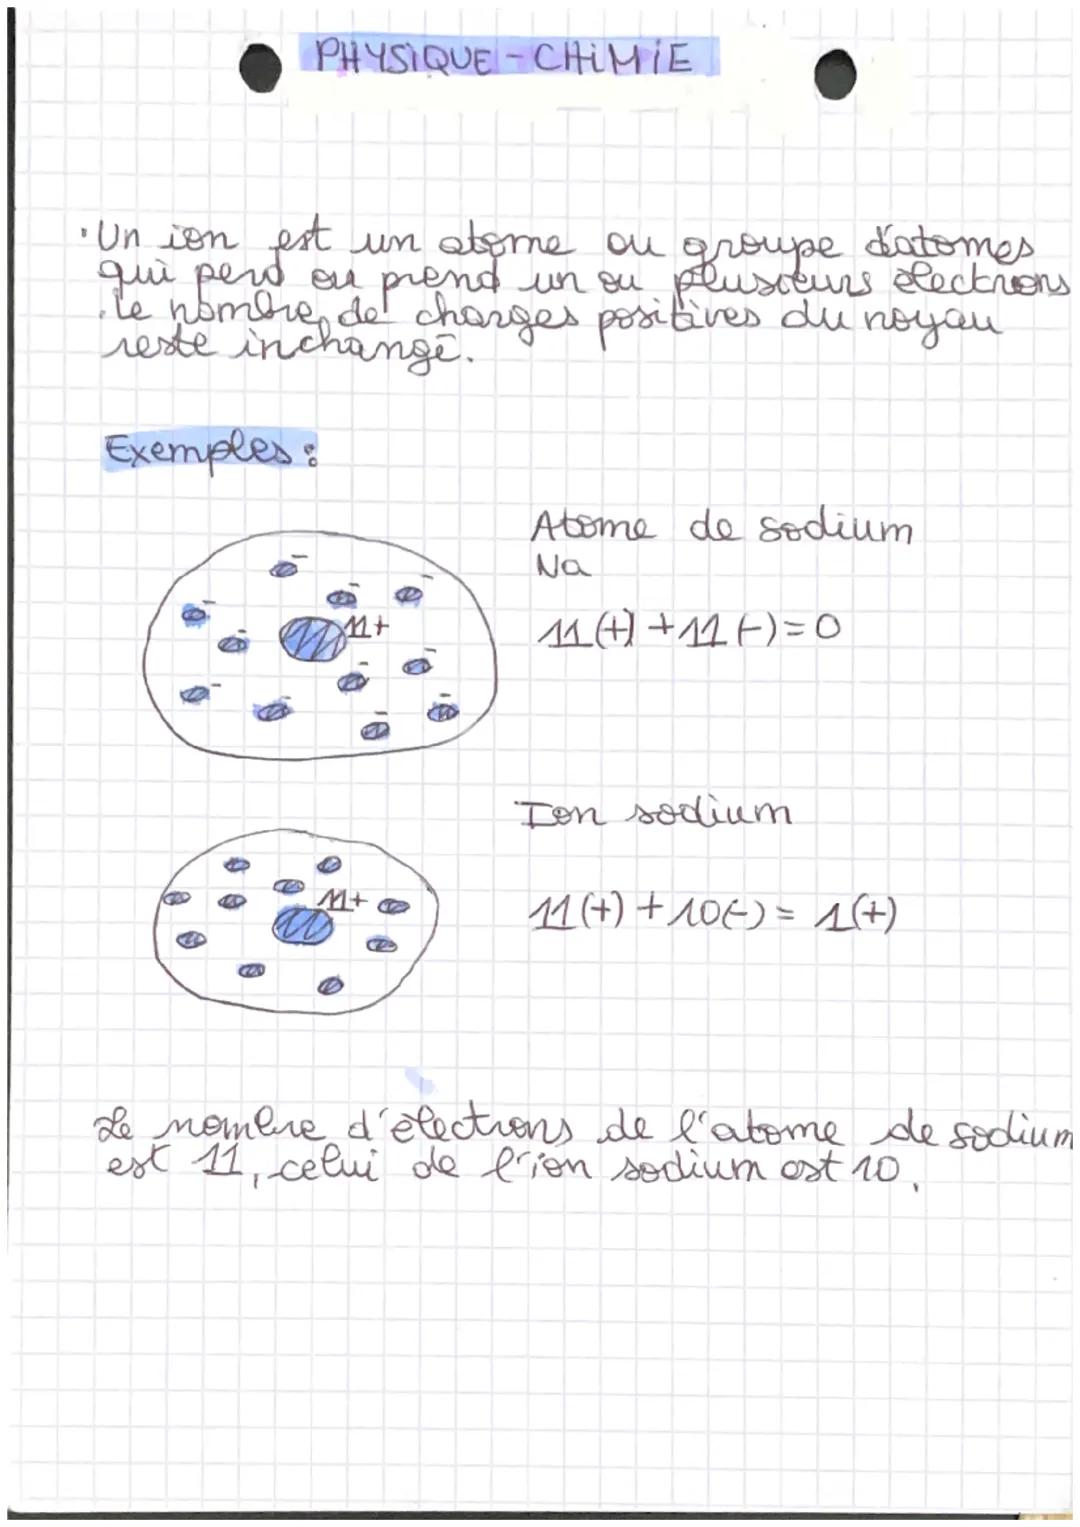 PHYSIQUE-CHiMiE
• Un ion est un atome ou groupe d'atomes
qui perd ou prend un ou plusieurs électrons
. le nombre de charges positives du noyau
reste inchangé.
Exemples :
Atome de sodium
Na
11+
11 (+) + 11 (-) = 0
Ion sodium
11+
11 (+) + 10 (-) = 1 (+)
Le nombre d'électrons de l'atome de sodium
est 11, celui de l'ion sodium est 10.